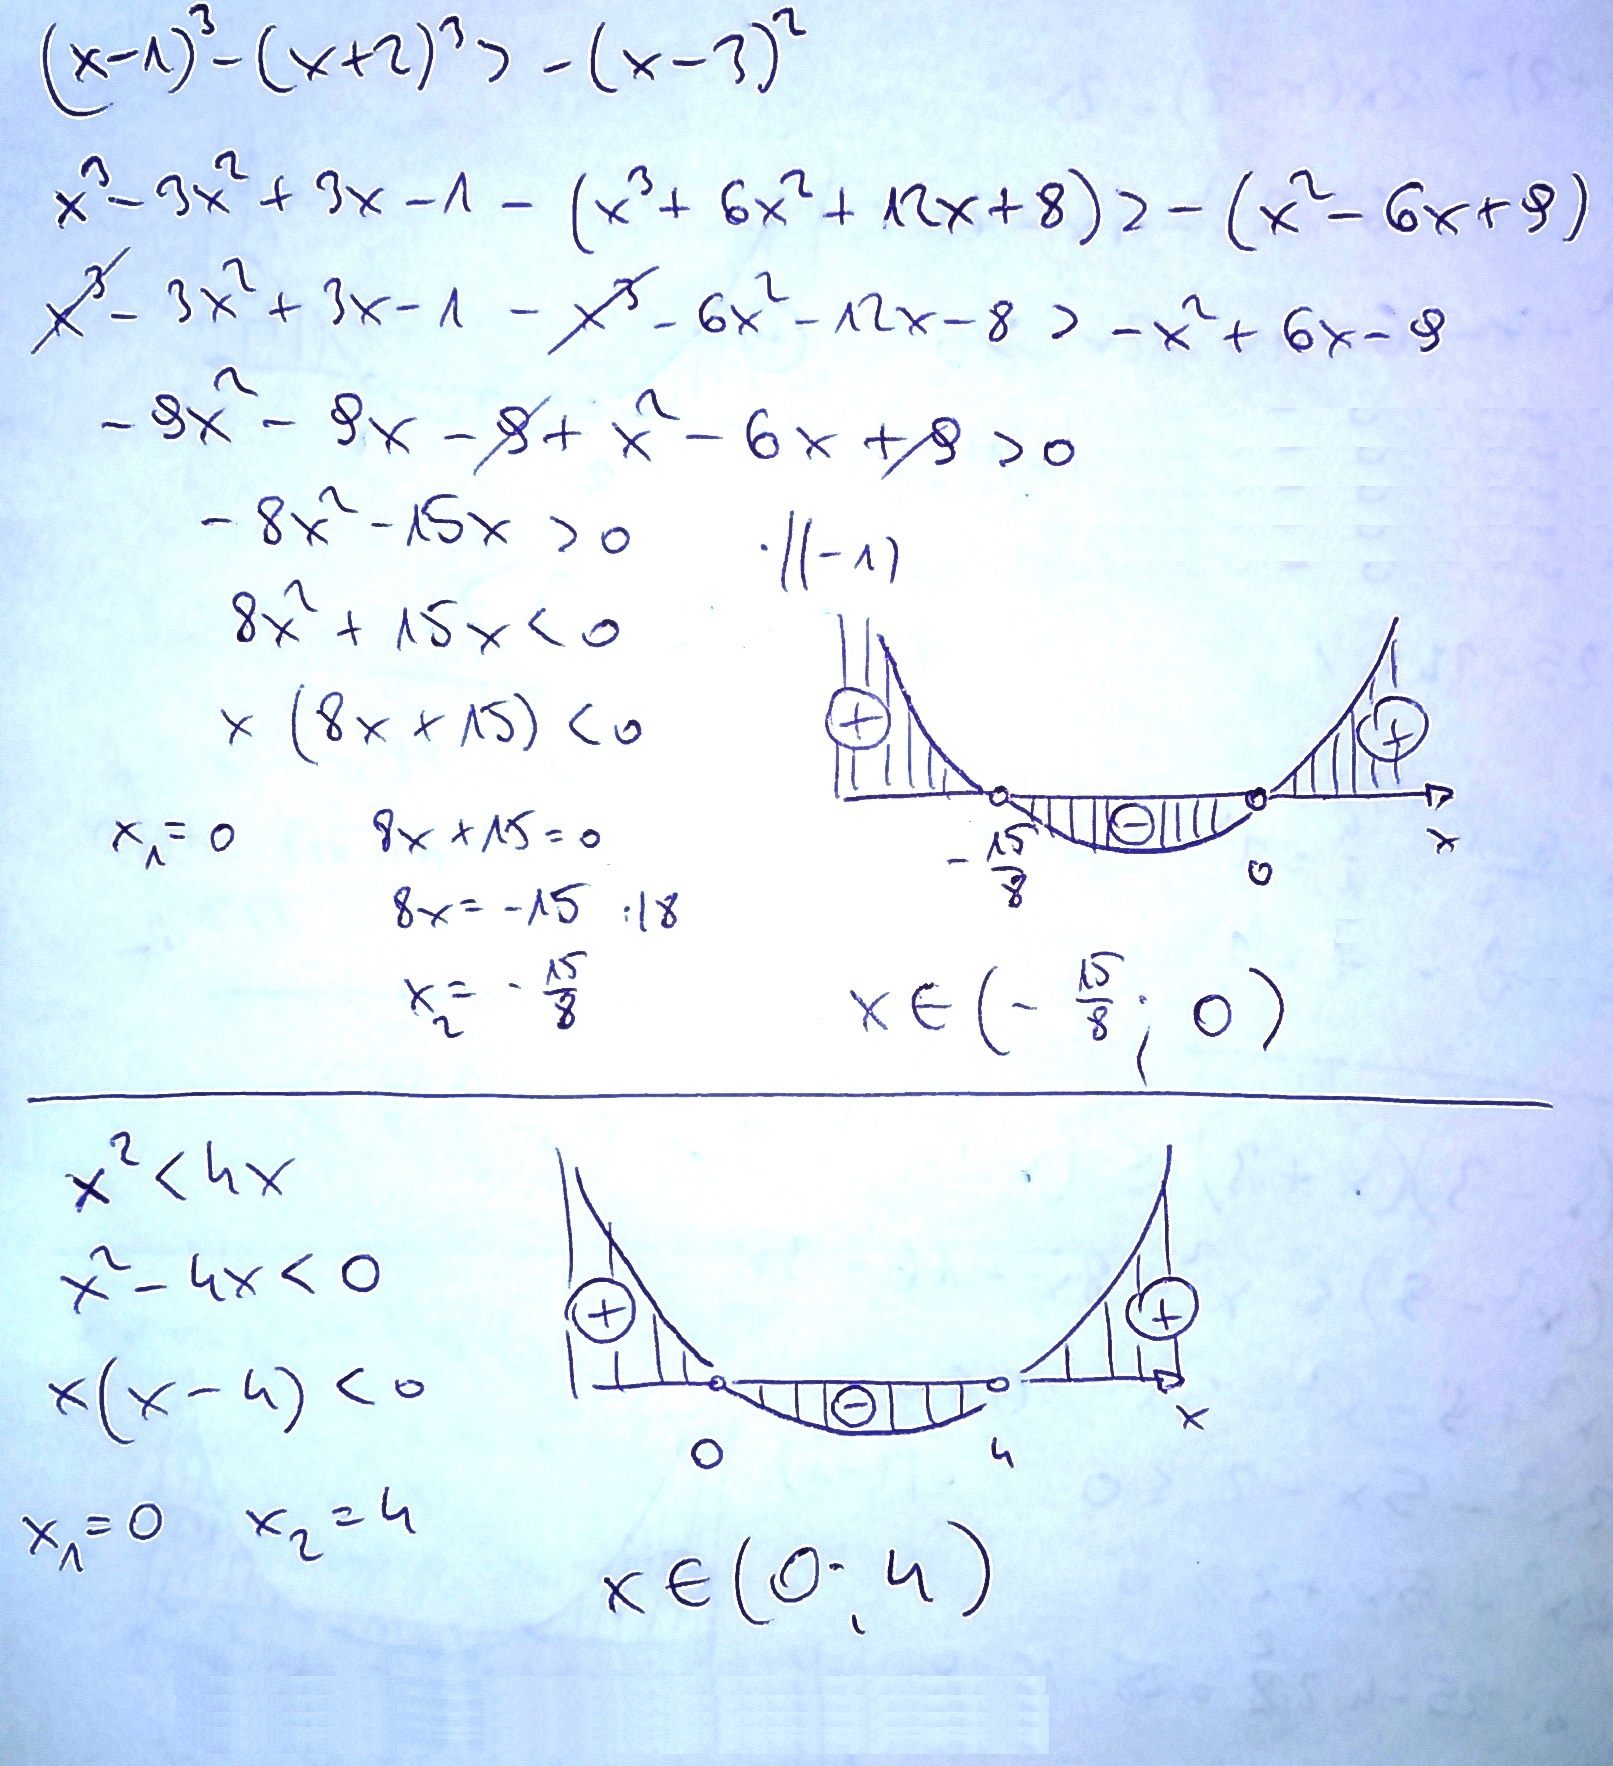 (x-1)³-(x+2)³>-(x-3)²
x³-3x²+3x-1-(x³+6x²+12x+8)>-(x²-6x+9)
x³-3x²+3x-1-x³-6x²-12x-8>-x²+6x-9
-9x²-9x-9+x²-6x+9>0
-8x²-15x>0 ·//(-1)
8x²+15x<0
x(8x+15)<0
x₁=0 8x+15=0
8x=-15 :/8
x₂=-15/8
+ - +
-15/8 0 x
x∈(-15/8; 0)
x²<4x
x²-4x<0
x(x-4)<0
x₁=0 x₂=4
+ - +
0 4 x
x∈(0;4)